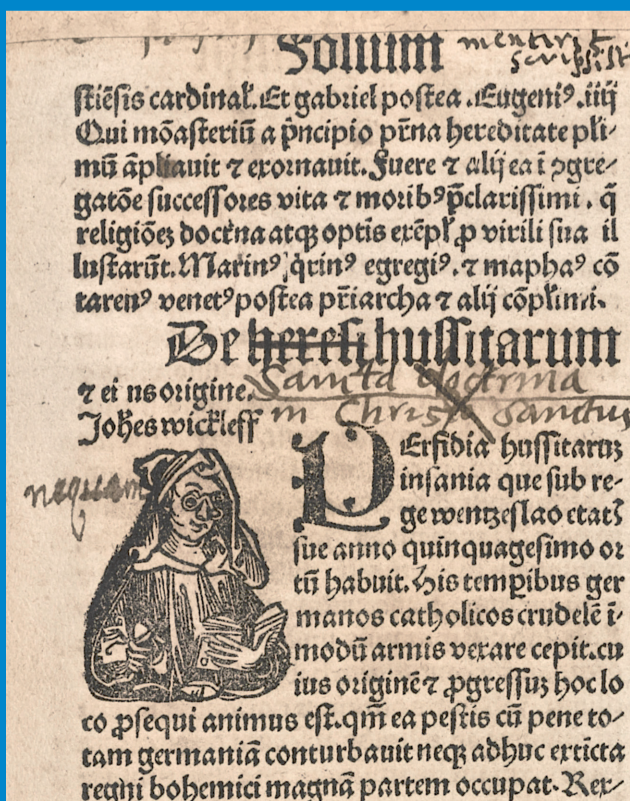 Folium mentiris
scripsisti
stiēsis cardinaƚ. Et gabriel postea . Eugeniꝰ . iiij
Qui mōasteriū a p̄ncipio pr̄na hereditate pli-
mū āpliauit ⁊ exornauit. Fuere ⁊ alij ea ī ꝯgre-
gatōe successores vita ⁊ moribꝰ p̄clarissimi . q̄
religiōeꝫ doctr̄na atqꝫ optīs exēpƚ ꝓ virili sua il
lustarūt. Marinꝰ q̄rinꝰ egregiꝰ . ⁊ maphaꝰ cō
tarenꝰ venetꝰ postea pr̄iarcha ⁊ alij cōplīmi.
De heresi hussitarum
⁊ ei ns origine. Sancta doctrina
Joh̄es wickleff in Christo Sanctus
nequam
PErfidia hussitaruꝫ
insania que sub re-
ge wentzeslao etatꝭ
sue anno quinquagesimo or
tū habuit. His temꝑibus ger
manos catholicos crudelē ī-
modū armis vexare cepit. cu
ius originē ⁊ ꝓgressuꝫ hoc lo
co ꝓsequi animus est. qm̄ ea pestis cū pene to-
tam germaniā conturbauit neqꝫ adhuc extīcta
regni bohemici magnā partem occupat. Rex-